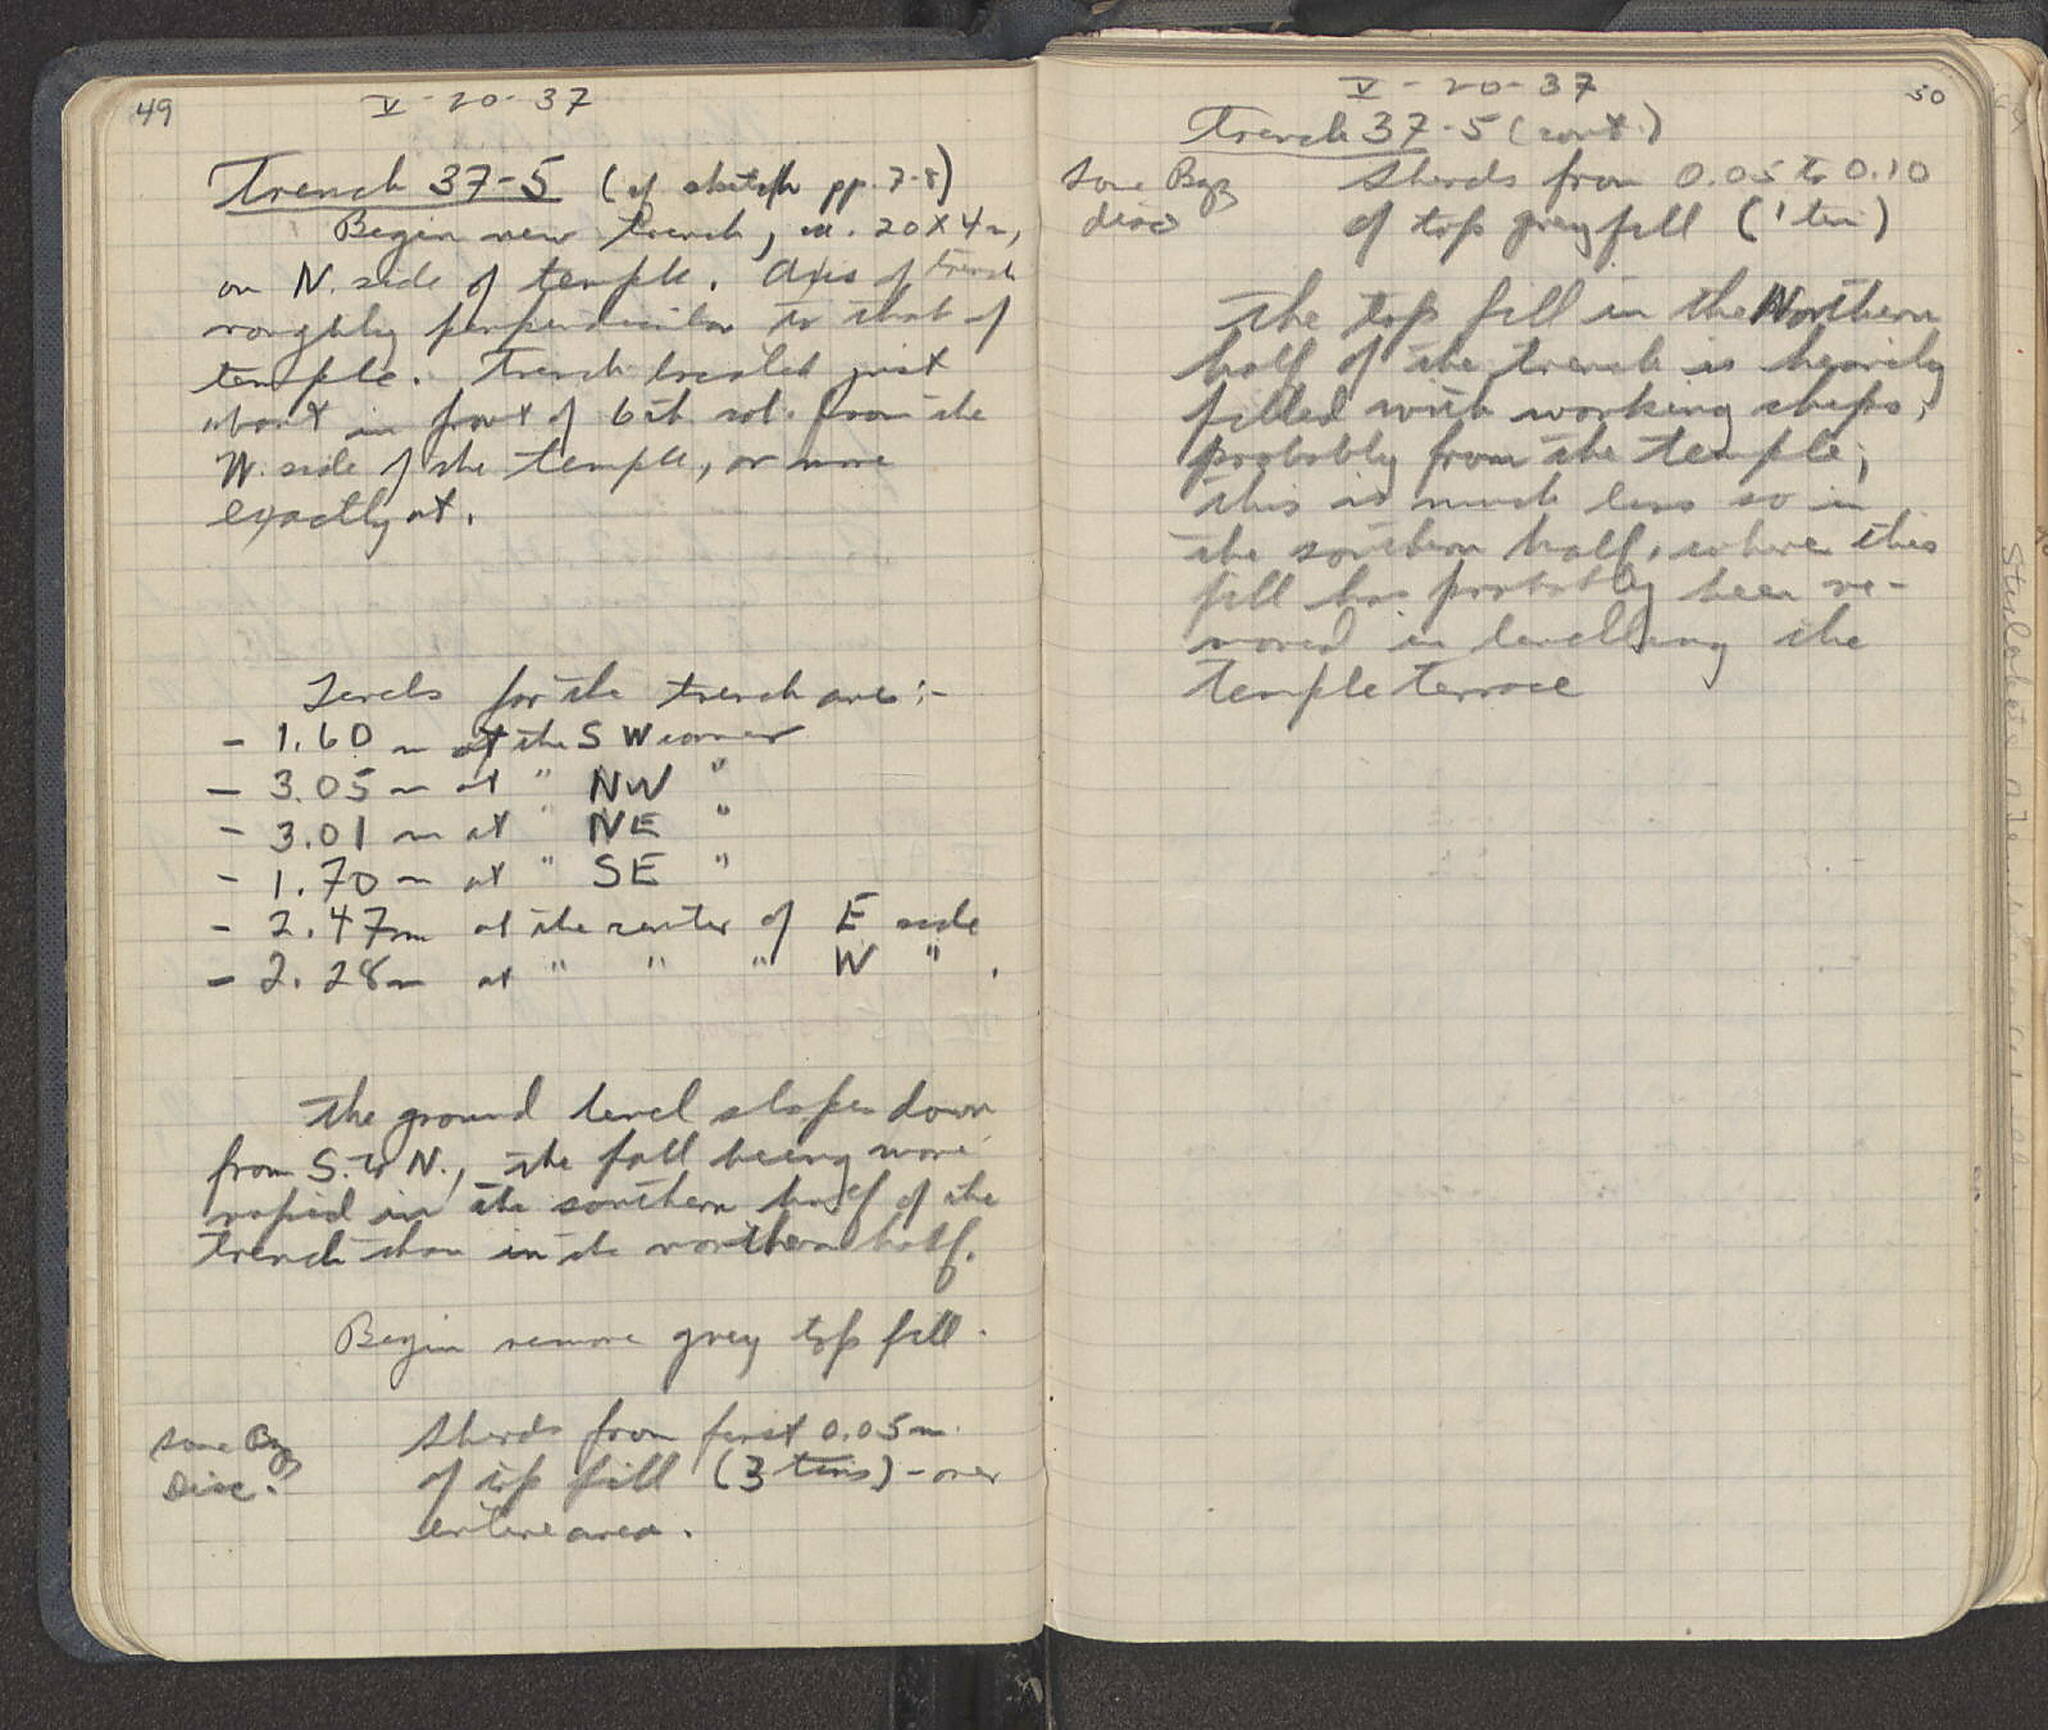 49
V-20-37
Trench 37-5 (cf sketch pp. 7-8)
Begin new trench, ca. 20 X 4 m,
on N. side of temple. Axis of trench
roughly perpendicular to that of
temple. Trench located just
about in front of 6th col. from the
W. side of the temple, or more
exactly at.
Levels for the trench are:-
- 1.60 m at the S W corner
- 3.05 m at " NW "
- 3.01 m at " NE "
- 1.70 m at " SE "
- 2.47m at the center of E side
- 2.28m at " " " W " .
The ground level slopes down
from S. to N., the fall being more
rapid in the southern half of the
trench than in the northern half.
Begin remove grey top fill.
Some Byz
Disc.
Sherds from first 0.05 m.
of top fill (3 tins) - over
entire area.
V-20-37
50
Trench 37-5 (cont.)
Some Byz
disc
Sherds from 0.05 to 0.10
of top grey fill (1 tin)
The top fill in the Northern
half of the trench is heavily
filled with working chips,
probably from the temple;
this is much less so in
the southern half, where this
fill has probably been re-
moved in levelling the
temple terrace